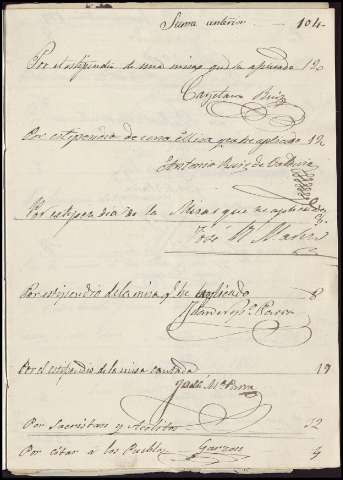 Suma anterior - 104-
Por el estipendio de una misa que he aplicado 12
Cayetano Ruiz
Por estipendio de una Missa q.e he aplicado 12
Antonio Ruiz de
Por estipendio de la Misa que he aplicado
José M Marin
Por estipendio de la misa q.e he aplicado 8
Parra
Por el estipendio de la misa cantada
José M.a Parra
Por Sacristan y Acolitos
Por citar a los Pueblos Garzon